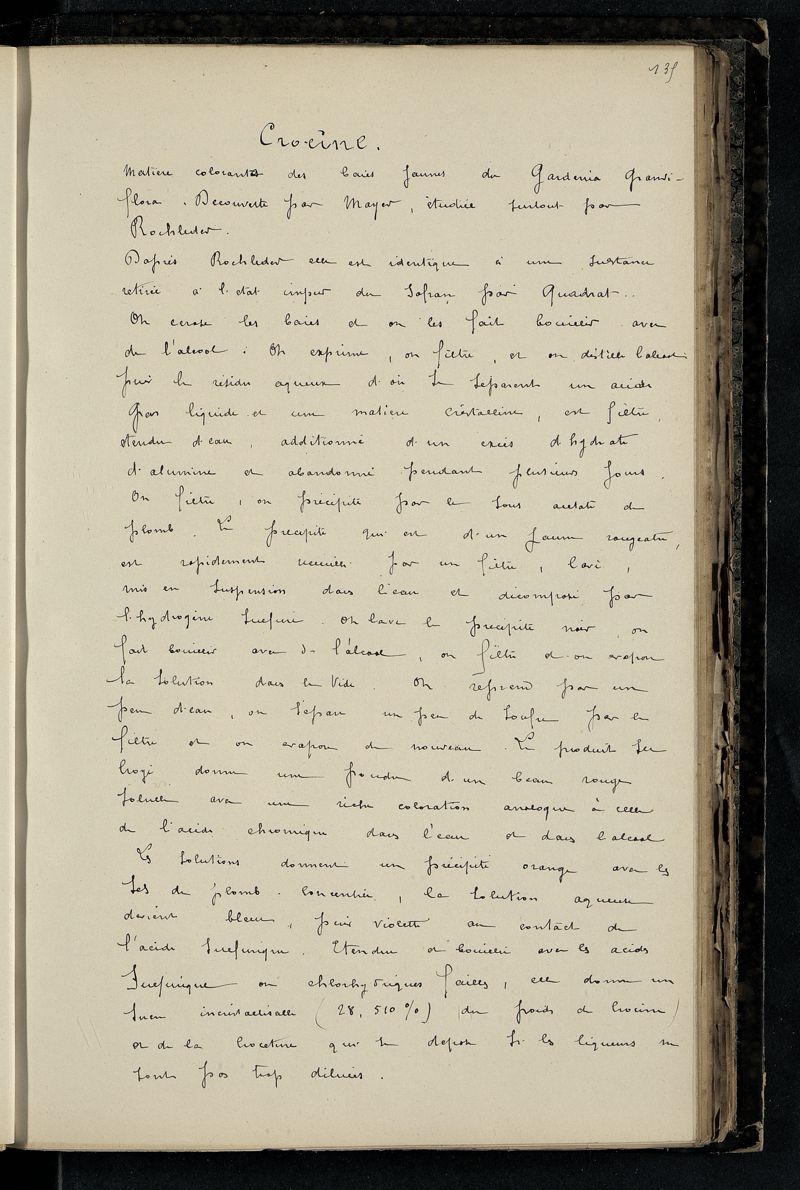 135
Crocine.
Matiere colorante des baies jaunes du Gardenia grandi-
flora. Decouverte par Mayer, étudiée surtout par
Rochleder.
Daprès Rochleder elle est identique à une substance
retirée à l'etat impur du Safran par Quadrat..
On ecrase les baies et on les fait bouillir avec
de l'alcool. On exprime, on filtre, et on distille l'alcool
puis le résidu aqueux d'où se separent un acide
gras liquide et une matiere cristalline, est filtré,
etendu d'eau, additionné d'un excès d'hydrate
d'alumine et abandonné pendant plusieurs jours.
On filtre, on précipite par le sous acetate de
plomb. Le precipité qui est d'un jaune rougeatre,
est rapidement recueilli par un filtre, lavé,
mis en suspension dans l'eau et decomposé par
l'hydrogène sulfuré. On lave le précipité noir, on
fait bouillir avec de l'alcool, on filtre et on evapore
la solution dans le vide. On reprend par un
peu d'eau, on sépare un peu de soufre par le
filtre et on evapore de nouveau. Le produit sec
broyé donne une poudre d'un beau rouge
soluble avec une riche coloration analogue à celle
de l'acide chromique dans l'eau et dans l'alcool
Les solutions donnent un précipité orange avec les
sels de plomb. Concentrée, la solution aqueuse
devient bleue, puis violette au contact de
l'acide sulfurique. Etendue et bouillie avec les acides
sulfurique ou chlorhydriques faibles, elle donne un
sucre incristallisable (28,510%) du poids de crocine)
et de la crocetine qui se depose si les liqueurs ne
sont pas trop diluées.